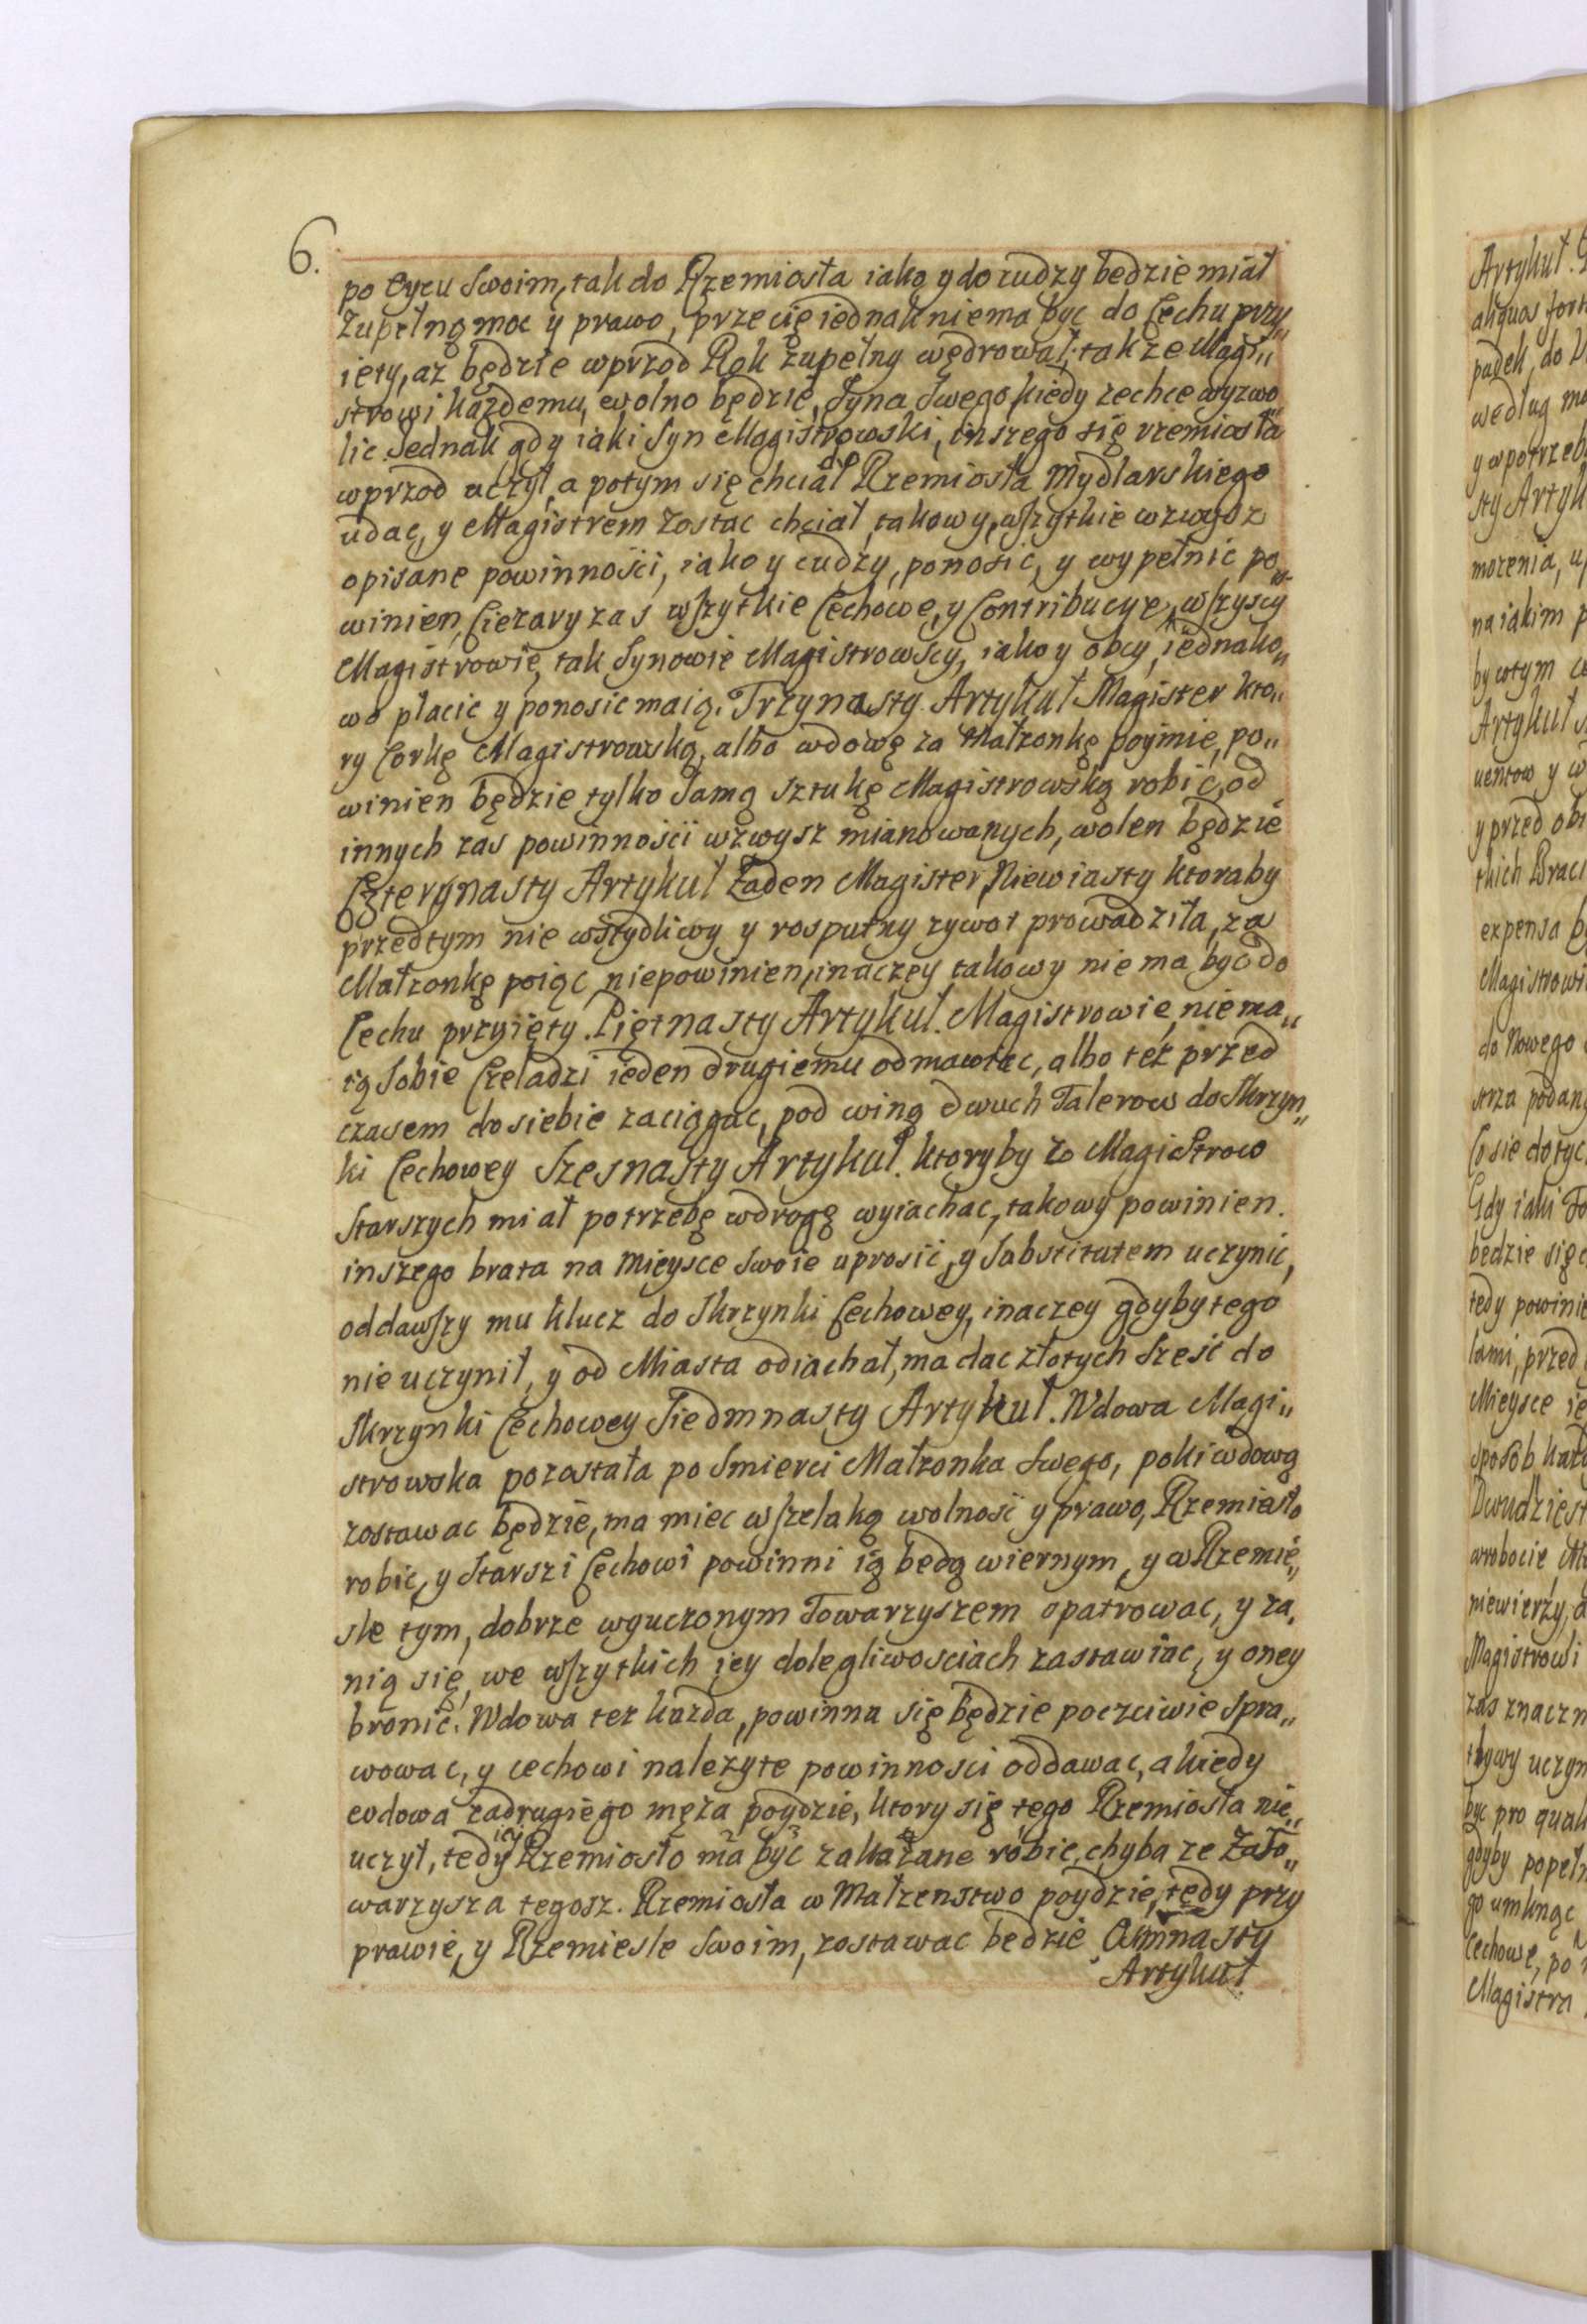 6.
po Oycu Swoim, tak do Rzemiosła iako y do cudzy będzie miał
Zupełną moc y prawo, przecię iednak niema byc do Cechu przy„
ięty, az będzie wprzod Rok zupełny wędrował, takze Magi„
strowi kazdemu, wolno będzie, Syna Swego kiedy zechce wyzwo„
lic. Jednak gdy iaki Syn Magistrowski, inszego się rzemiosła
wprzod uczył, a potym się chciał do Rzemiosła Mydlarskiego
udac, y Magistrem zostac chciał, takowy, wszytkie wzwysz
opisane powinnosci, iako y cudzy, ponosic, y wypełnic po„
winien, Cięzary zas wszytkie Cechowe, y Contribucye, wszyscy
Magistrowie, tak Synowie Magistrowscy, iako y obcy, iednako„
wo płacic y ponosic maią. Trzynasty Artykuł Magister kto„
ry Corkę Magistrowską, albo wdowę za Małzonkę poymie, po„
winien będzie tylko Samą sztukę Magistrowską robic, od
innych zas powinnosci wzwysz mianowanych, wolen będzie
Czternasty Artykuł Zaden Magister, Niewiasty ktoraby
przedtym nie wstydliwy y rosputny zywot prowadziła, za
Małzonkę poiąc niepowinien, inaczey takowy nie ma byc do
Cechu przyięty. Piętnasty Artykuł. Magistrowie, nie ma„
ią Sobie Czeladzi ieden drugiemu odmawiac, albo tez przed
czasem do siebie zaciągac, pod winą dwuch Talerow do Skrzyn„
ki Cechowey Szesnasty Artykuł. ktoryby zo Magistrow
Starszych miał potrzebę w drogę wyiachac, takowy powinien.
inszego brata na Mieysce Swoie uprosic, y Substitutem uczynic,
oddawszy mu klucz do Skrzynki Cechowey, inaczey gdyby tego
nie uczynił, y od Miasta odiachał, ma dac złotych Szesć do
Skrzynki Cechowey Siedmnasty Artykuł. Wdowa Magi„
strowska pozostała po Smierci Małzonka Swego, poki wdową
zostawac będzie, ma miec wszelaką wolnosc y prawo, Rzemiesło
robic, y Starszi Cechowi powinni ią będą wiernym, y w Rzemie„
sle tym, dobrze wyuczonym Towarzyszem opatrowac, y za„
nią się, we wszytkich iey dolegliwosciach zastawiac, y oney
bronic. Wdowa tez kazda, powinna się będzie poczciwie spra„
wowac, y cechowi nalezyte powinnosci oddawac, a kiedy
wdowa za drugiego męza poydzie, ktory się tego Rzemiosła nie„
uczył, tedy iey Rzemiosło ma być zakazane robic, chyba ze Za To„
warzysza tegosz. Rzemiosła w Małzenstwo poydzie, tedy przy
prawie, y Rzemiesle Swoim, zostawac będzie Osmnasty
Artykuł